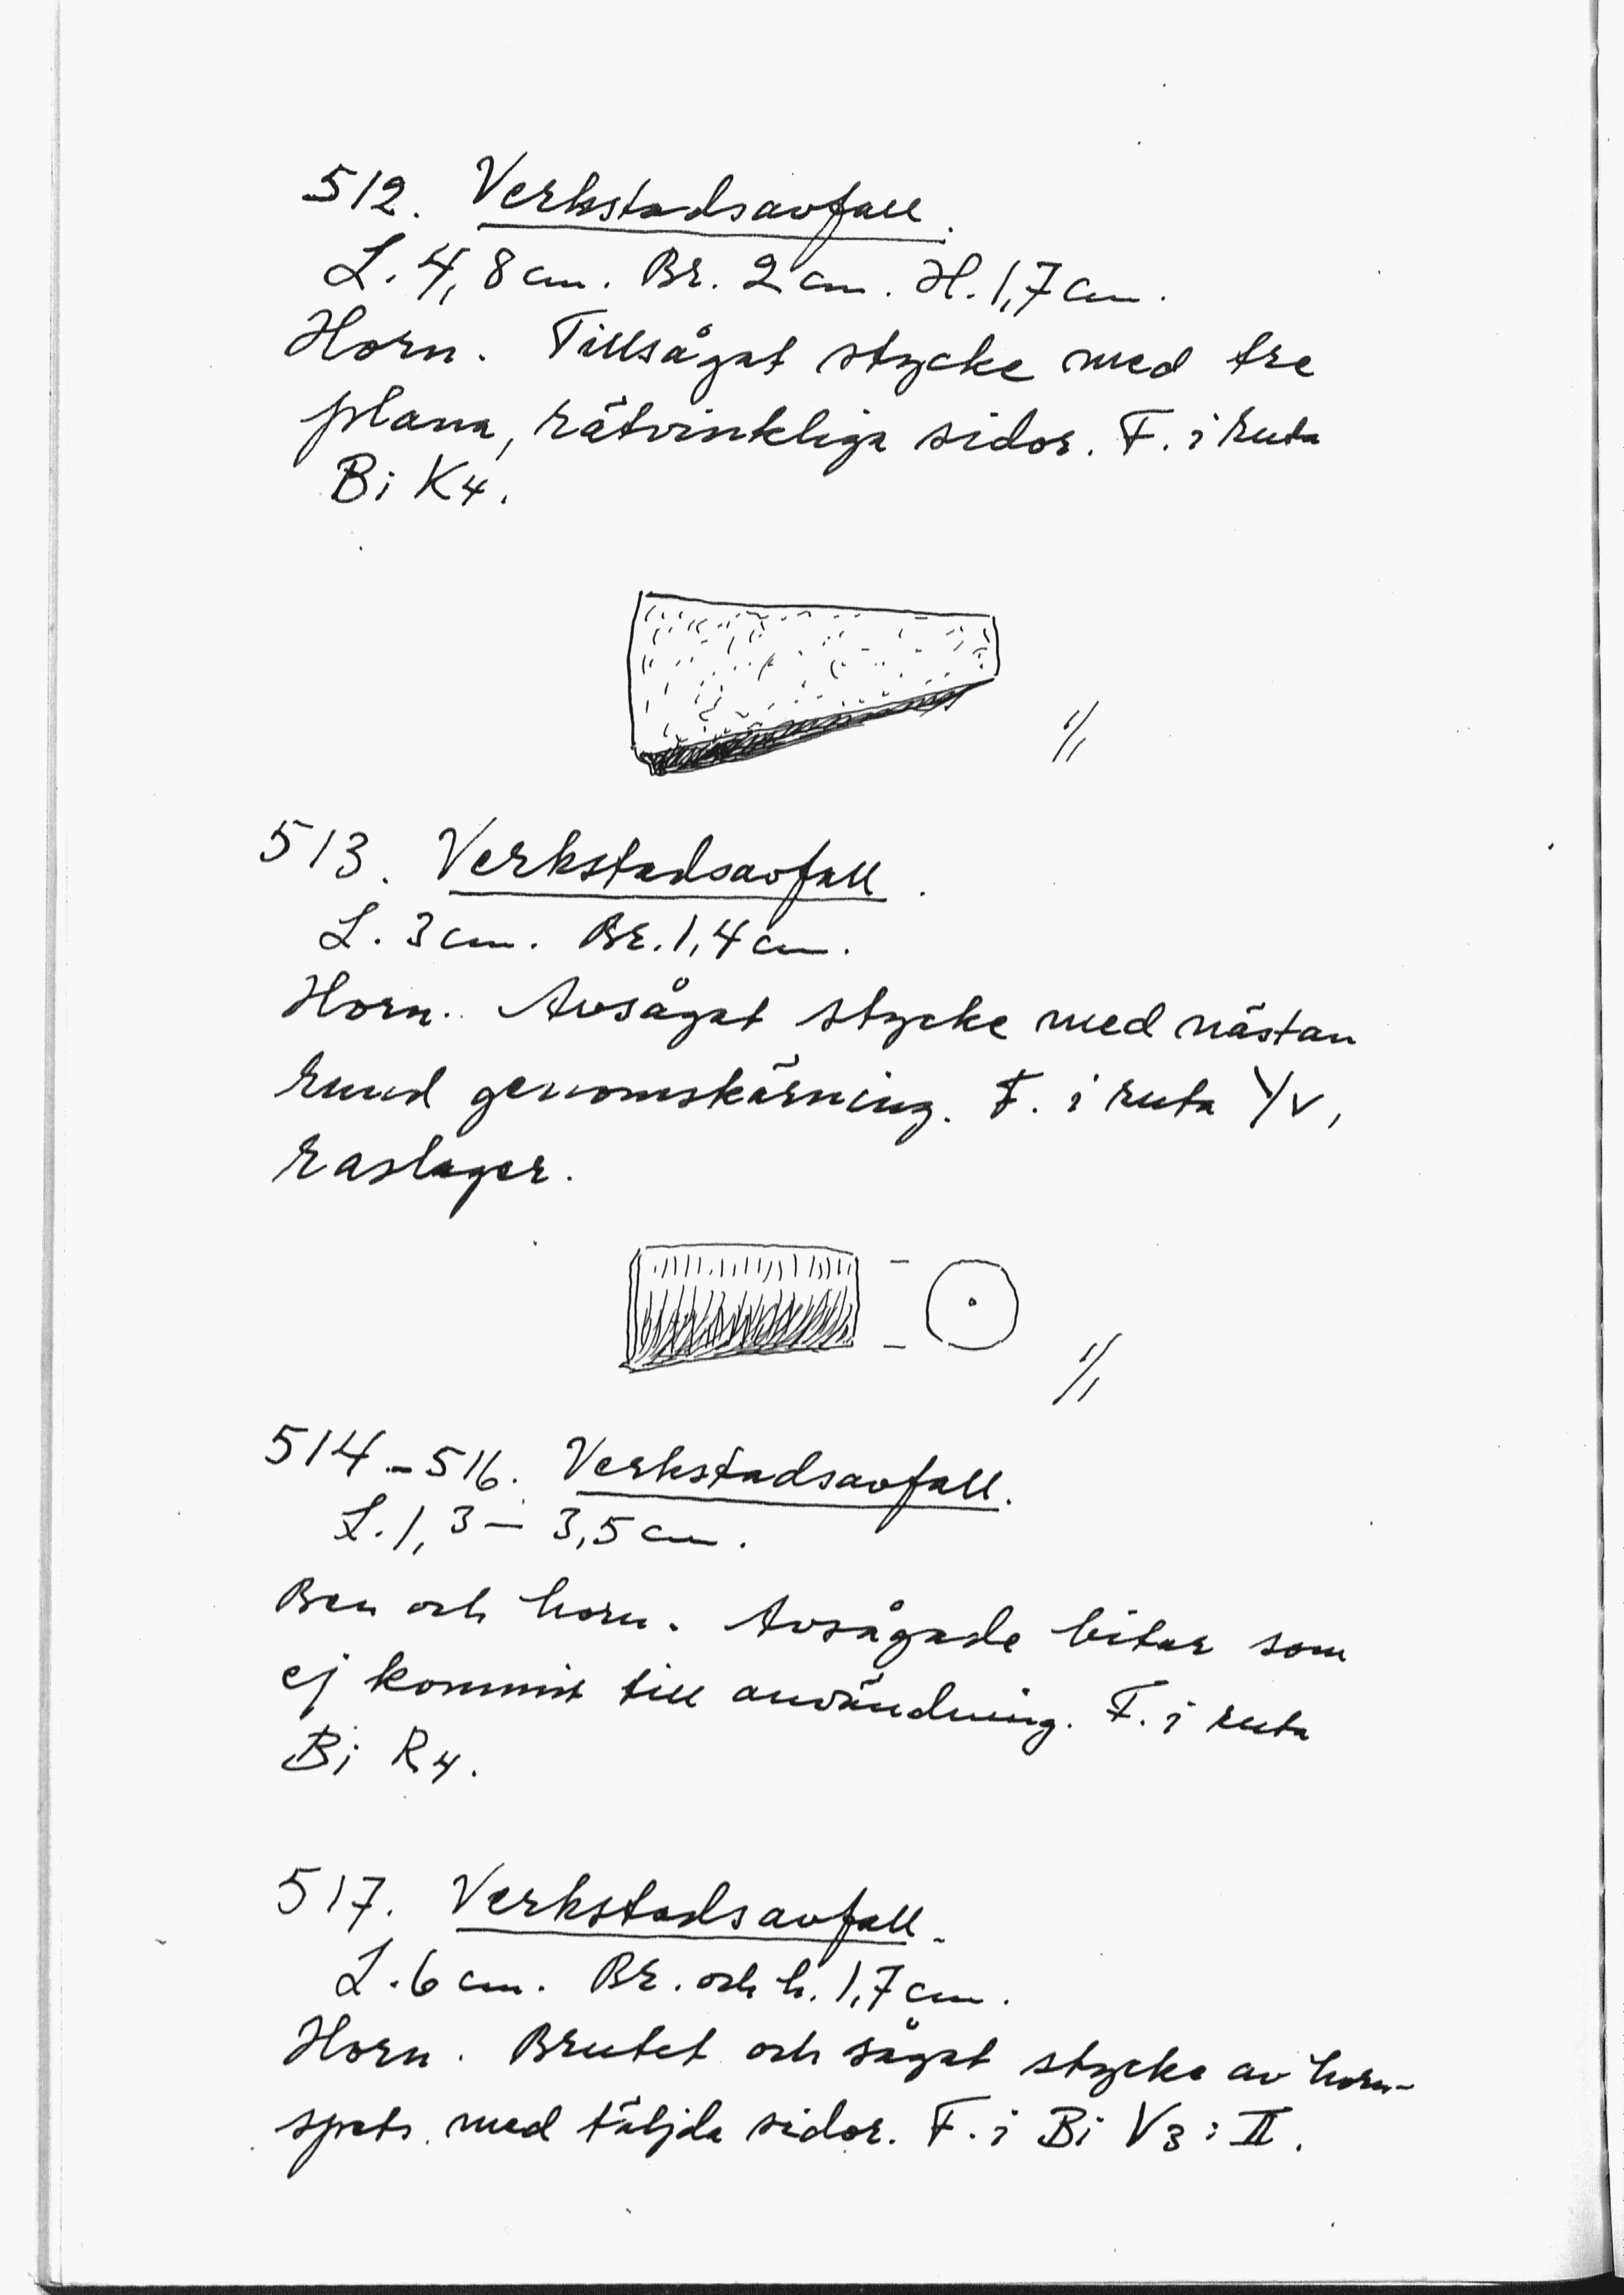 512. Verkstadsavfall.
L. 4,8 cm. Br. 2 cm. H. 1,7 cm.
Horn. Tillsågat stycke med tre
plana, rätvinkliga sidor. F. i ruta
Bi K4.
1/1
513. Verkstadsavfall.
L. 3 cm. Br. 1,4 cm.
Horn. Avsågat stycke med nästan
rund genomskärning. F. i ruta Y/V,
raslager.
1/1
514-516. Verkstadsavfall.
L. 1,3 - 3,5 cm.
Ben och horn. Avsågade bitar som
ej kommit till användning. F. i ruta
Bi R4.
517. Verkstadsavfall.
L. 6 cm. Br. och h. 1,7 cm.
Horn. Brutet och sågat stycke av horn-
spets med täljda sidor. F. i Bi V3:II.